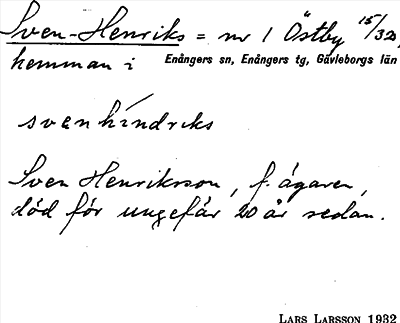 Sven-Henriks = nr 1 Östby 15/32,
hemman i Enångers sn, Enångers tg, Gävleborgs län
svenhindriks
Sven Henriksson, f. ägaren,
död för ungefär 20 år sedan.
LARS LARSSON 1932